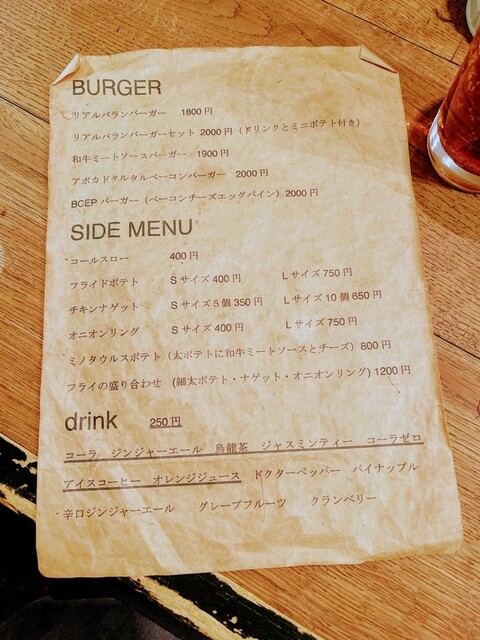 BURGER
リアルバランバーガー 1800円
リアルバランバーガーセット 2000円（ドリンクとミニポテト付き）
和牛ミートソースバーガー 1900円
アボカドタルタルベーコンバーガー 2000円
BCEPバーガー（ベーコンチーズエッグパイン）2000円
SIDE MENU
コールスロー 400円
フライドポテト Sサイズ400円 Lサイズ750円
チキンナゲット Sサイズ5個350円 Lサイズ10個650円
オニオンリング Sサイズ400円 Lサイズ750円
ミノタウルスポテト（太ポテトに和牛ミートソースとチーズ）800円
フライの盛り合わせ （細太ポテト・ナゲット・オニオンリング）1200円
drink 250円
コーラ ジンジャーエール 烏龍茶 ジャスミンティー コーラゼロ
アイスコーヒー オレンジジュース ドクターペッパー パイナップル
・辛口ジンジャーエール グレープフルーツ クランベリー